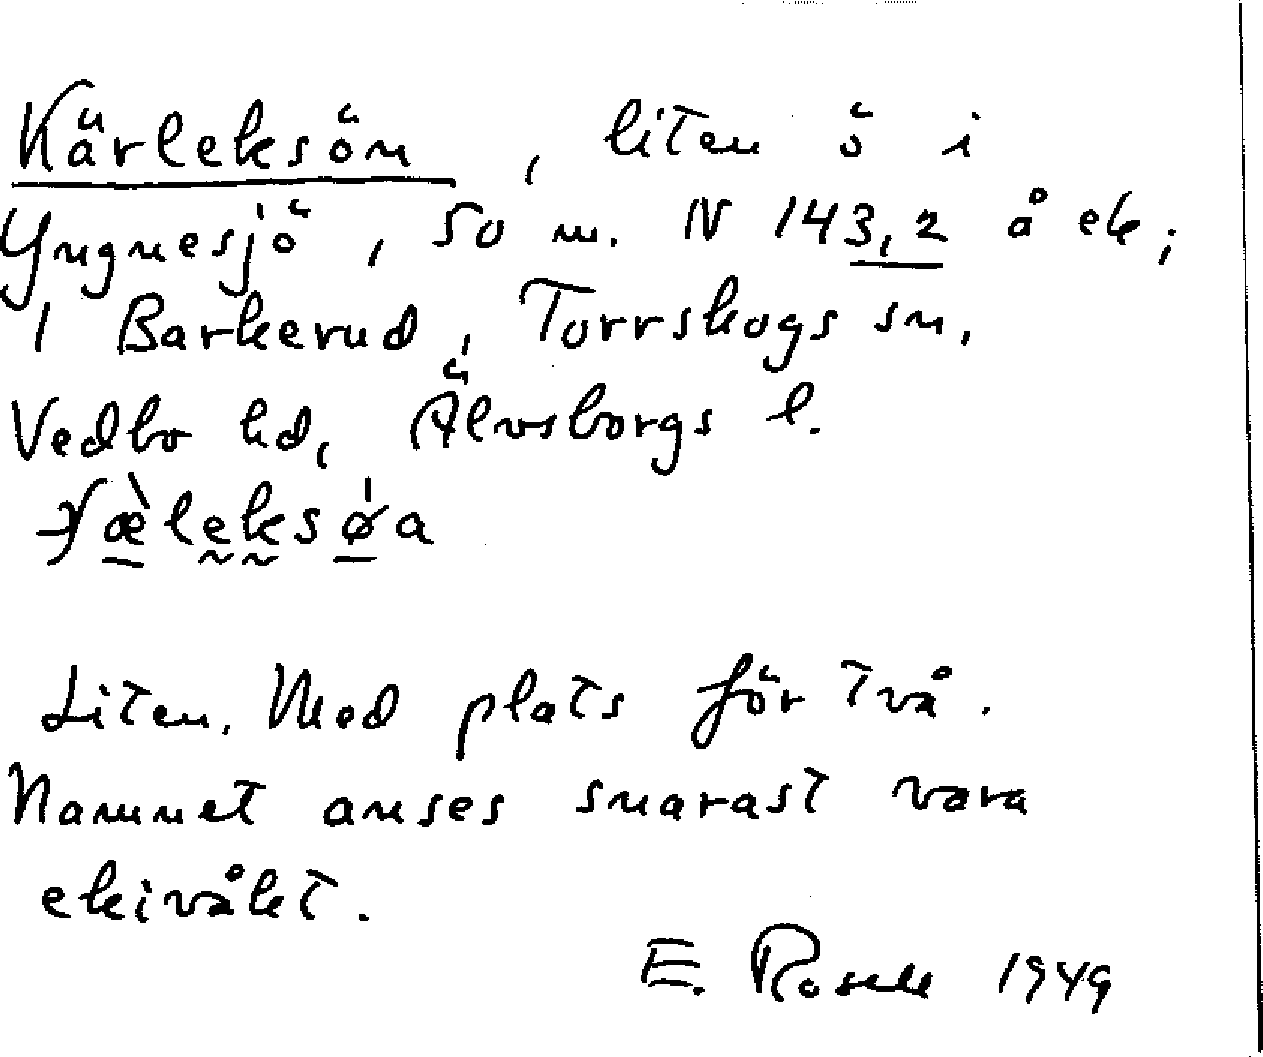 Kärleksön, liten ö i
Yngnesjö, So m. N 143,2 å ek;
1 Barkerud, Torrskogs sn,
Vedbo hd, Älvsborgs l.
æ̀leksǿa
Liten. Med plats för två.
Namnet anses snarast vara
ekivåkt.
E. Rosell 1949